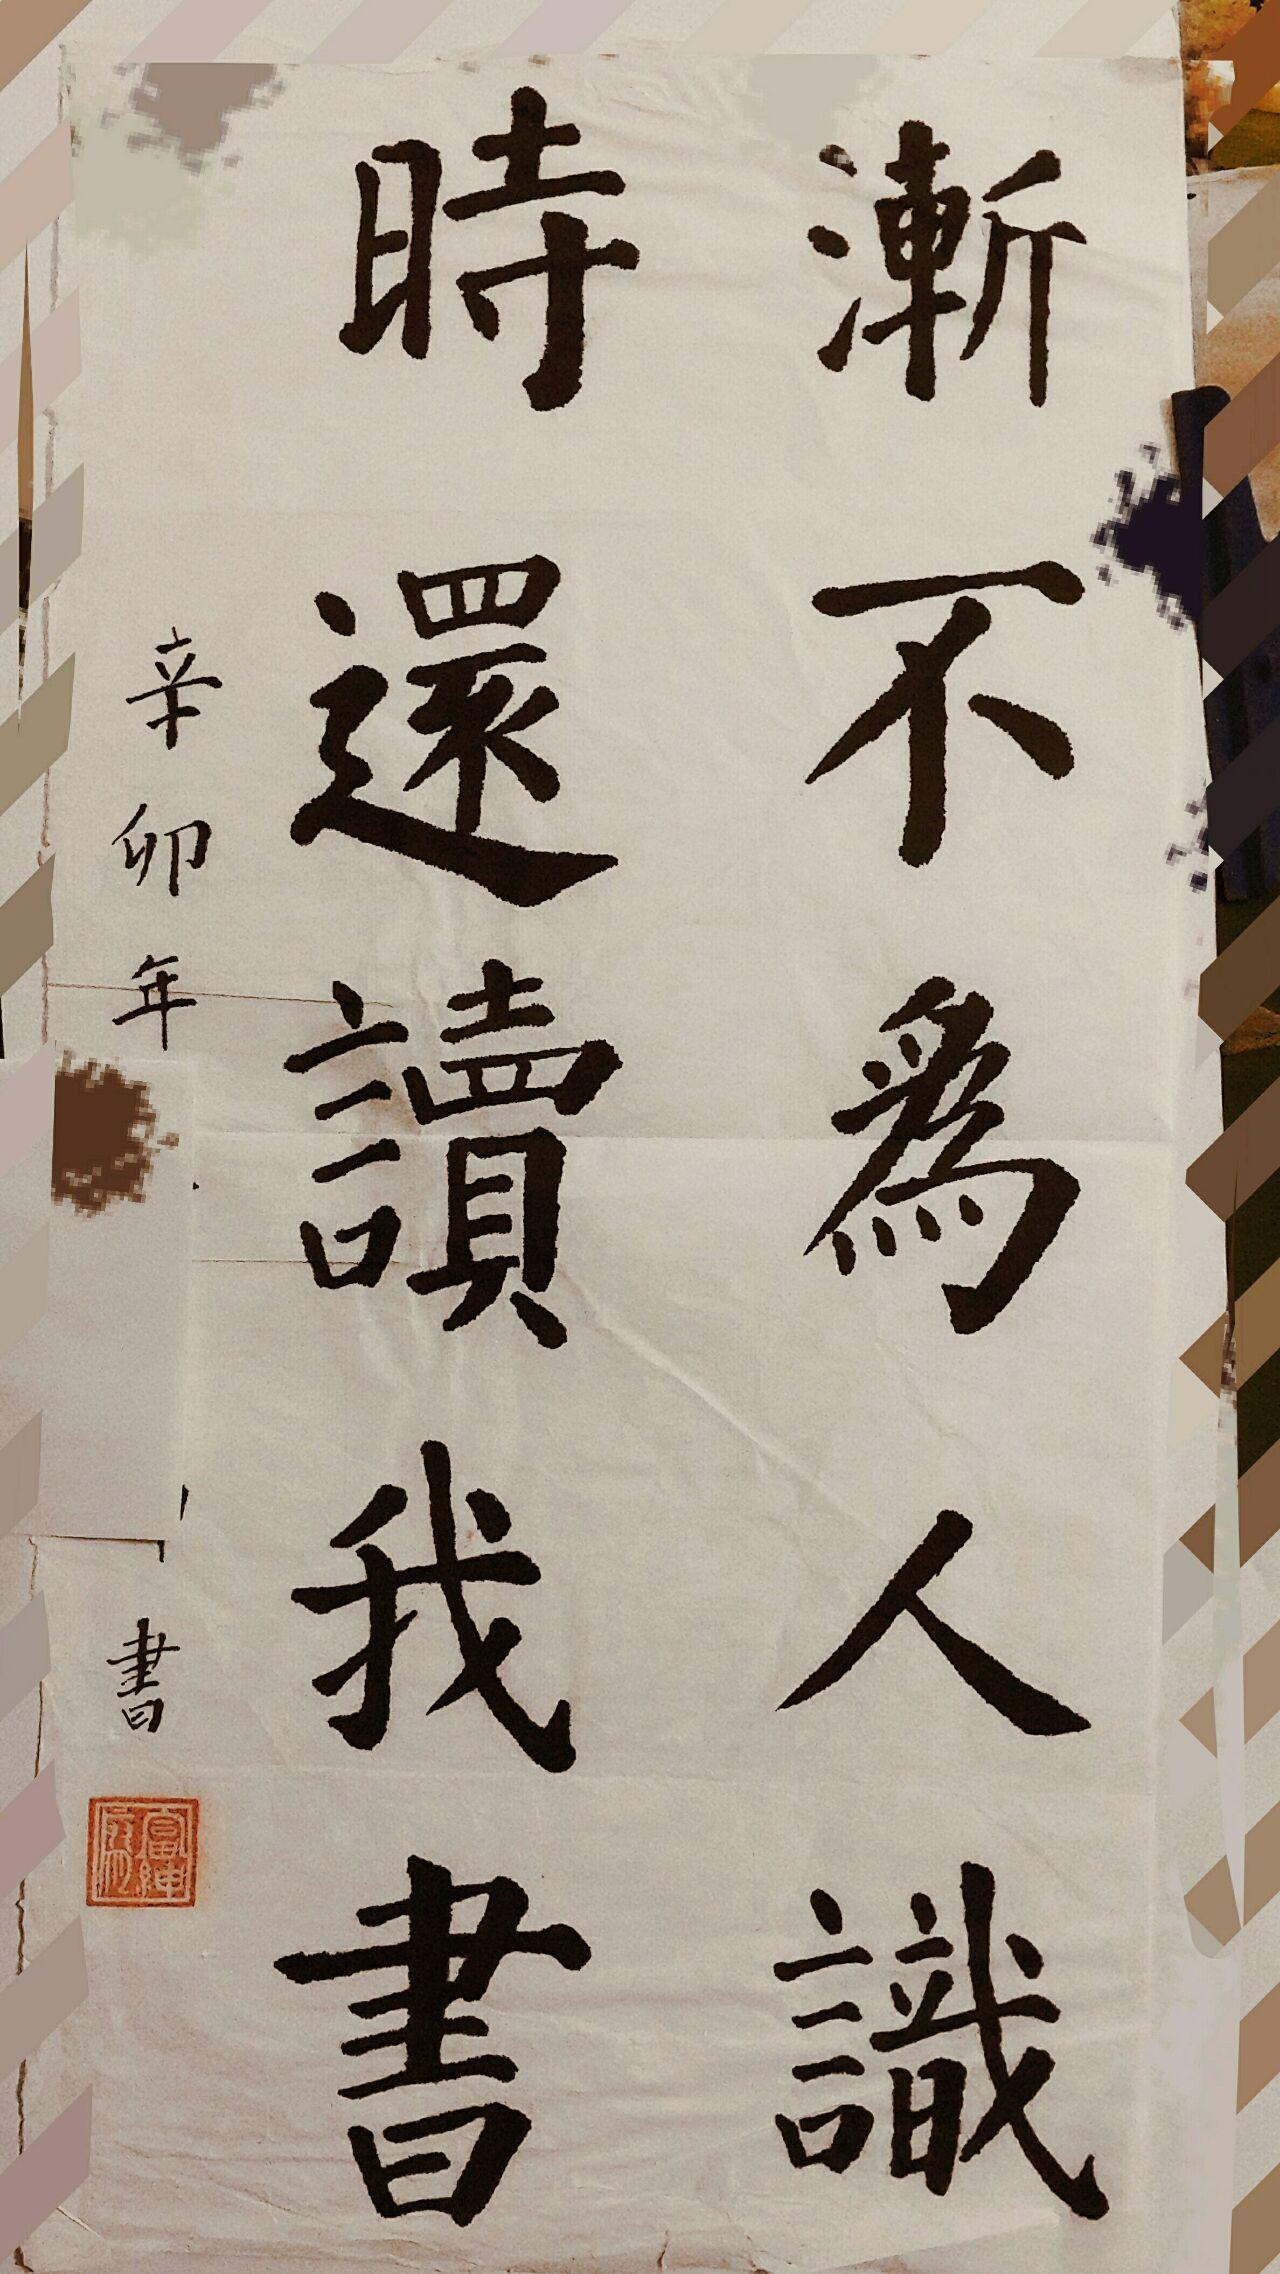 漸不爲人識
時還讀我書
辛卯年
書